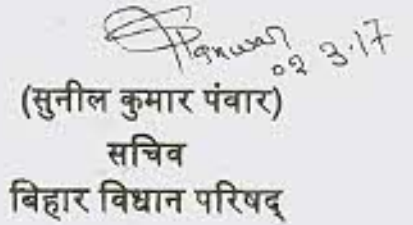 Panwar
02 3.17
(सुनील कुमार पंवार)
सचिव
बिहार विधान परिषद्